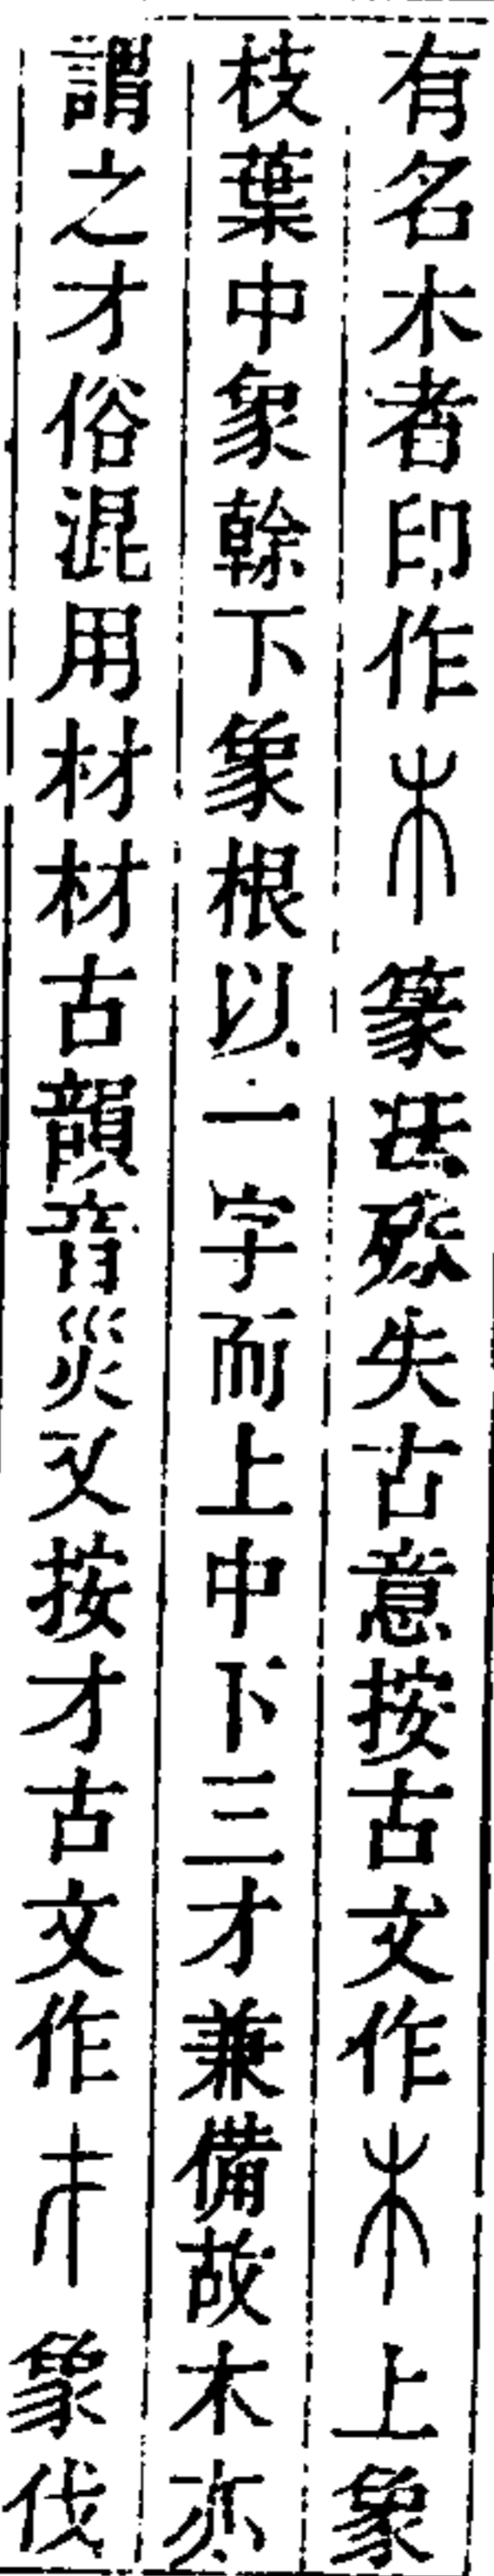 有名木者印作木篆法殊失古意按古文作木上象
枝葉中象幹下象根以一字而上中下三才兼備故木亦
謂之才俗混用材材古韻音災又按才古文作才象伐